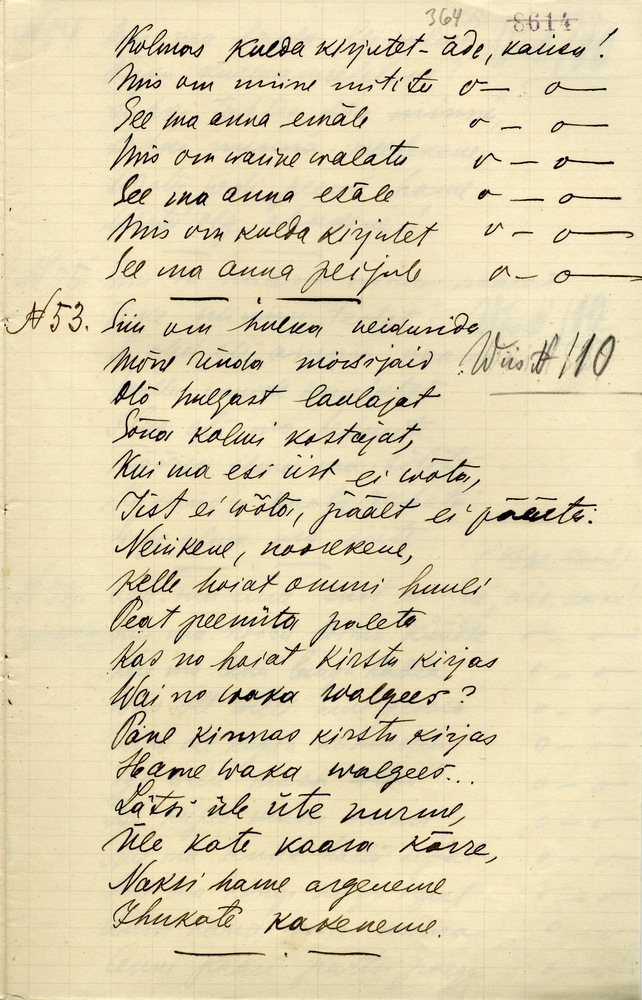 364 8614
Kolmas kulda kirjutet - äde, kaisu!
Mis om niine nititu o— o—
See ma anna emäle o — o—
Mis om warine walatu o — o—
See ma anna esäle o — o—
Mis om kulda kirjutet o — o—
See ma anna peijule o — o—
N 53. Siin om hulka neidusida
Mõne rinda mõrsijaid Wiis № 110
Olõ hulgast laulajat
Sõna kolmi kostajat,
Kui ma esi iist ei wõta,
Iist ei wõta, päält ei päästa.
Neiukene, noorekene,
Kelle hoiat ommi huuli
Peat peeniita paleta
Kas no hoiat kirstu kirjas
Wai no waka walgees?
Pane kinnas kirstu kirjas
Hame waka walgees...
Lätsi üle üte nurme,
Üle kate kaara kõrre,
Naksi hame argeneme
Ihukate kakeneme.